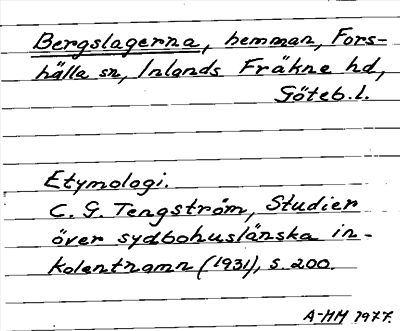 Bergslagerna, hemman, Fors-
hälla sn, Inlands Fräkne hd,
Göteb.l.
Etymologi.
C. G. Tengström, Studier
över sydbohuslänska in-
kolentnamn (1931), s. 200.
A-MM 1977.